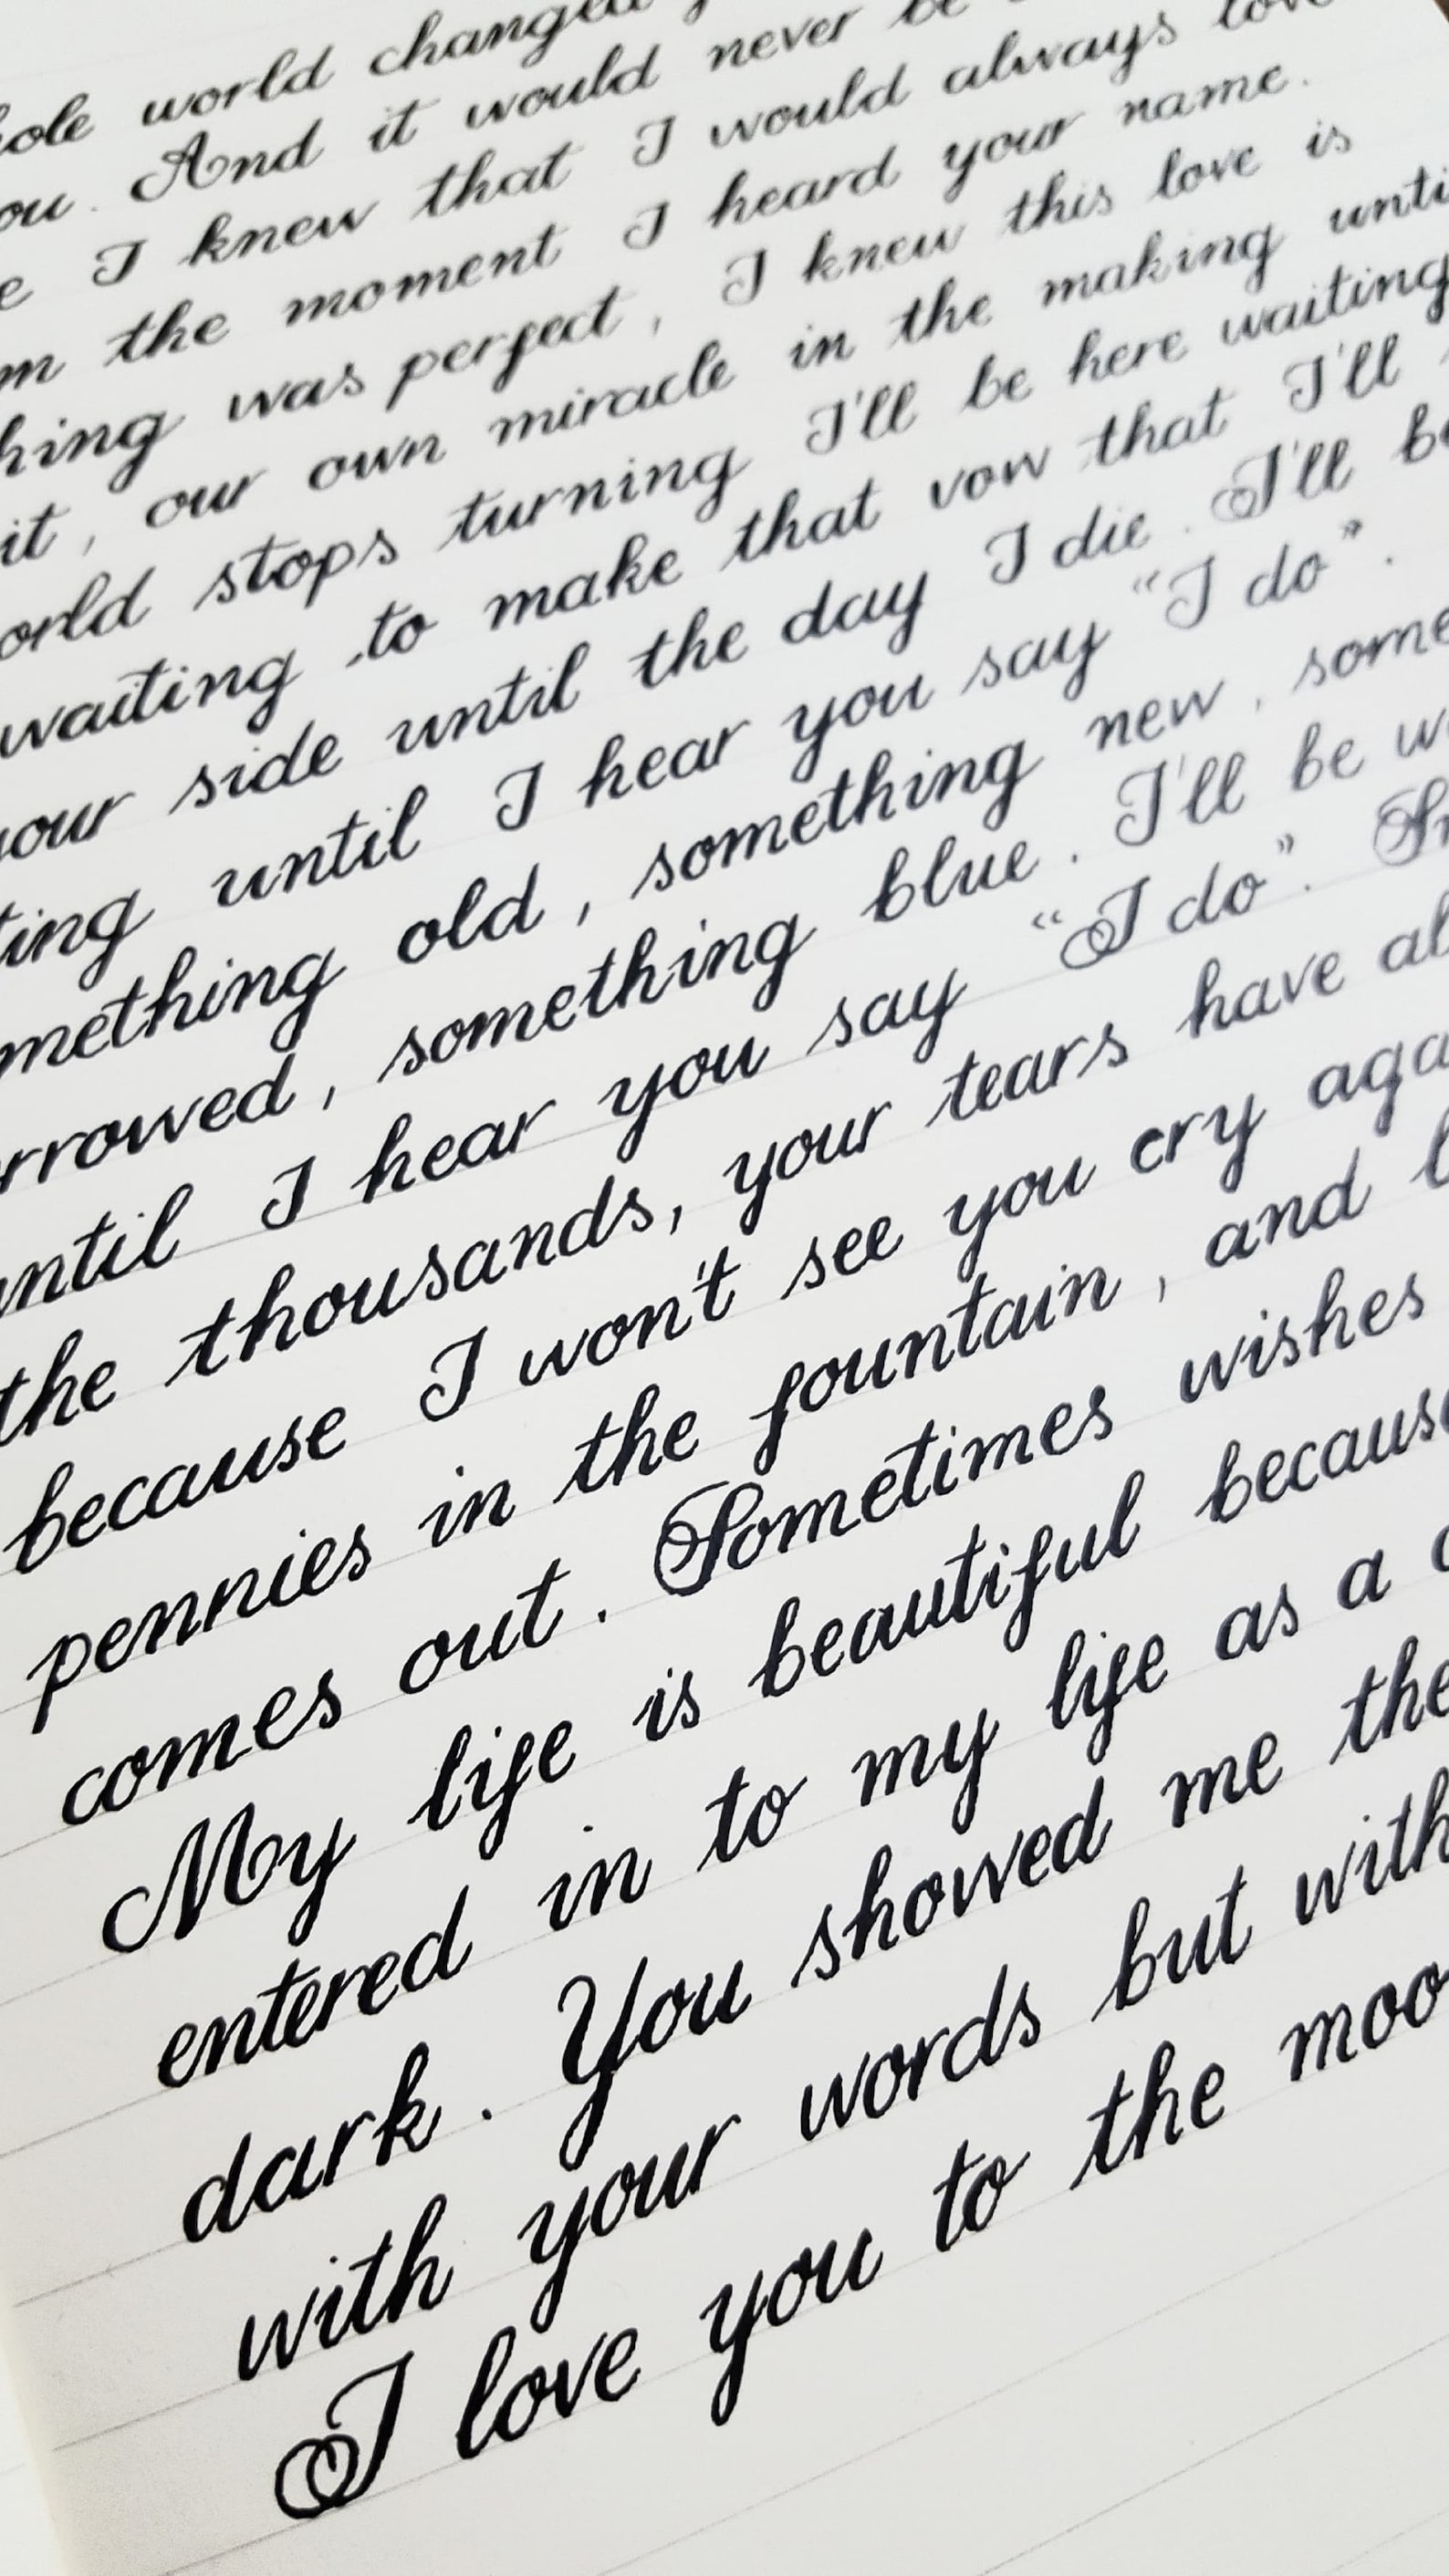 world changed
And it would never be
I knew that I would always
the moment I heard your name.
was perfect, I knew this love is
it, our own miracle in the making
stops turning I'll be here waiting
waiting to make that vow that I'll
side until the day I die. I'll
until I hear you say "I do".
old, something new, some
something blue. I'll be
I hear you say "I do".
the thousands, your tears have
because I won't see you cry
pennies in the fountain, and
comes out. Sometimes wishes
My life is beautiful because
entered in to my life as a
dark. You showed me the
with your words but with
I love you to the